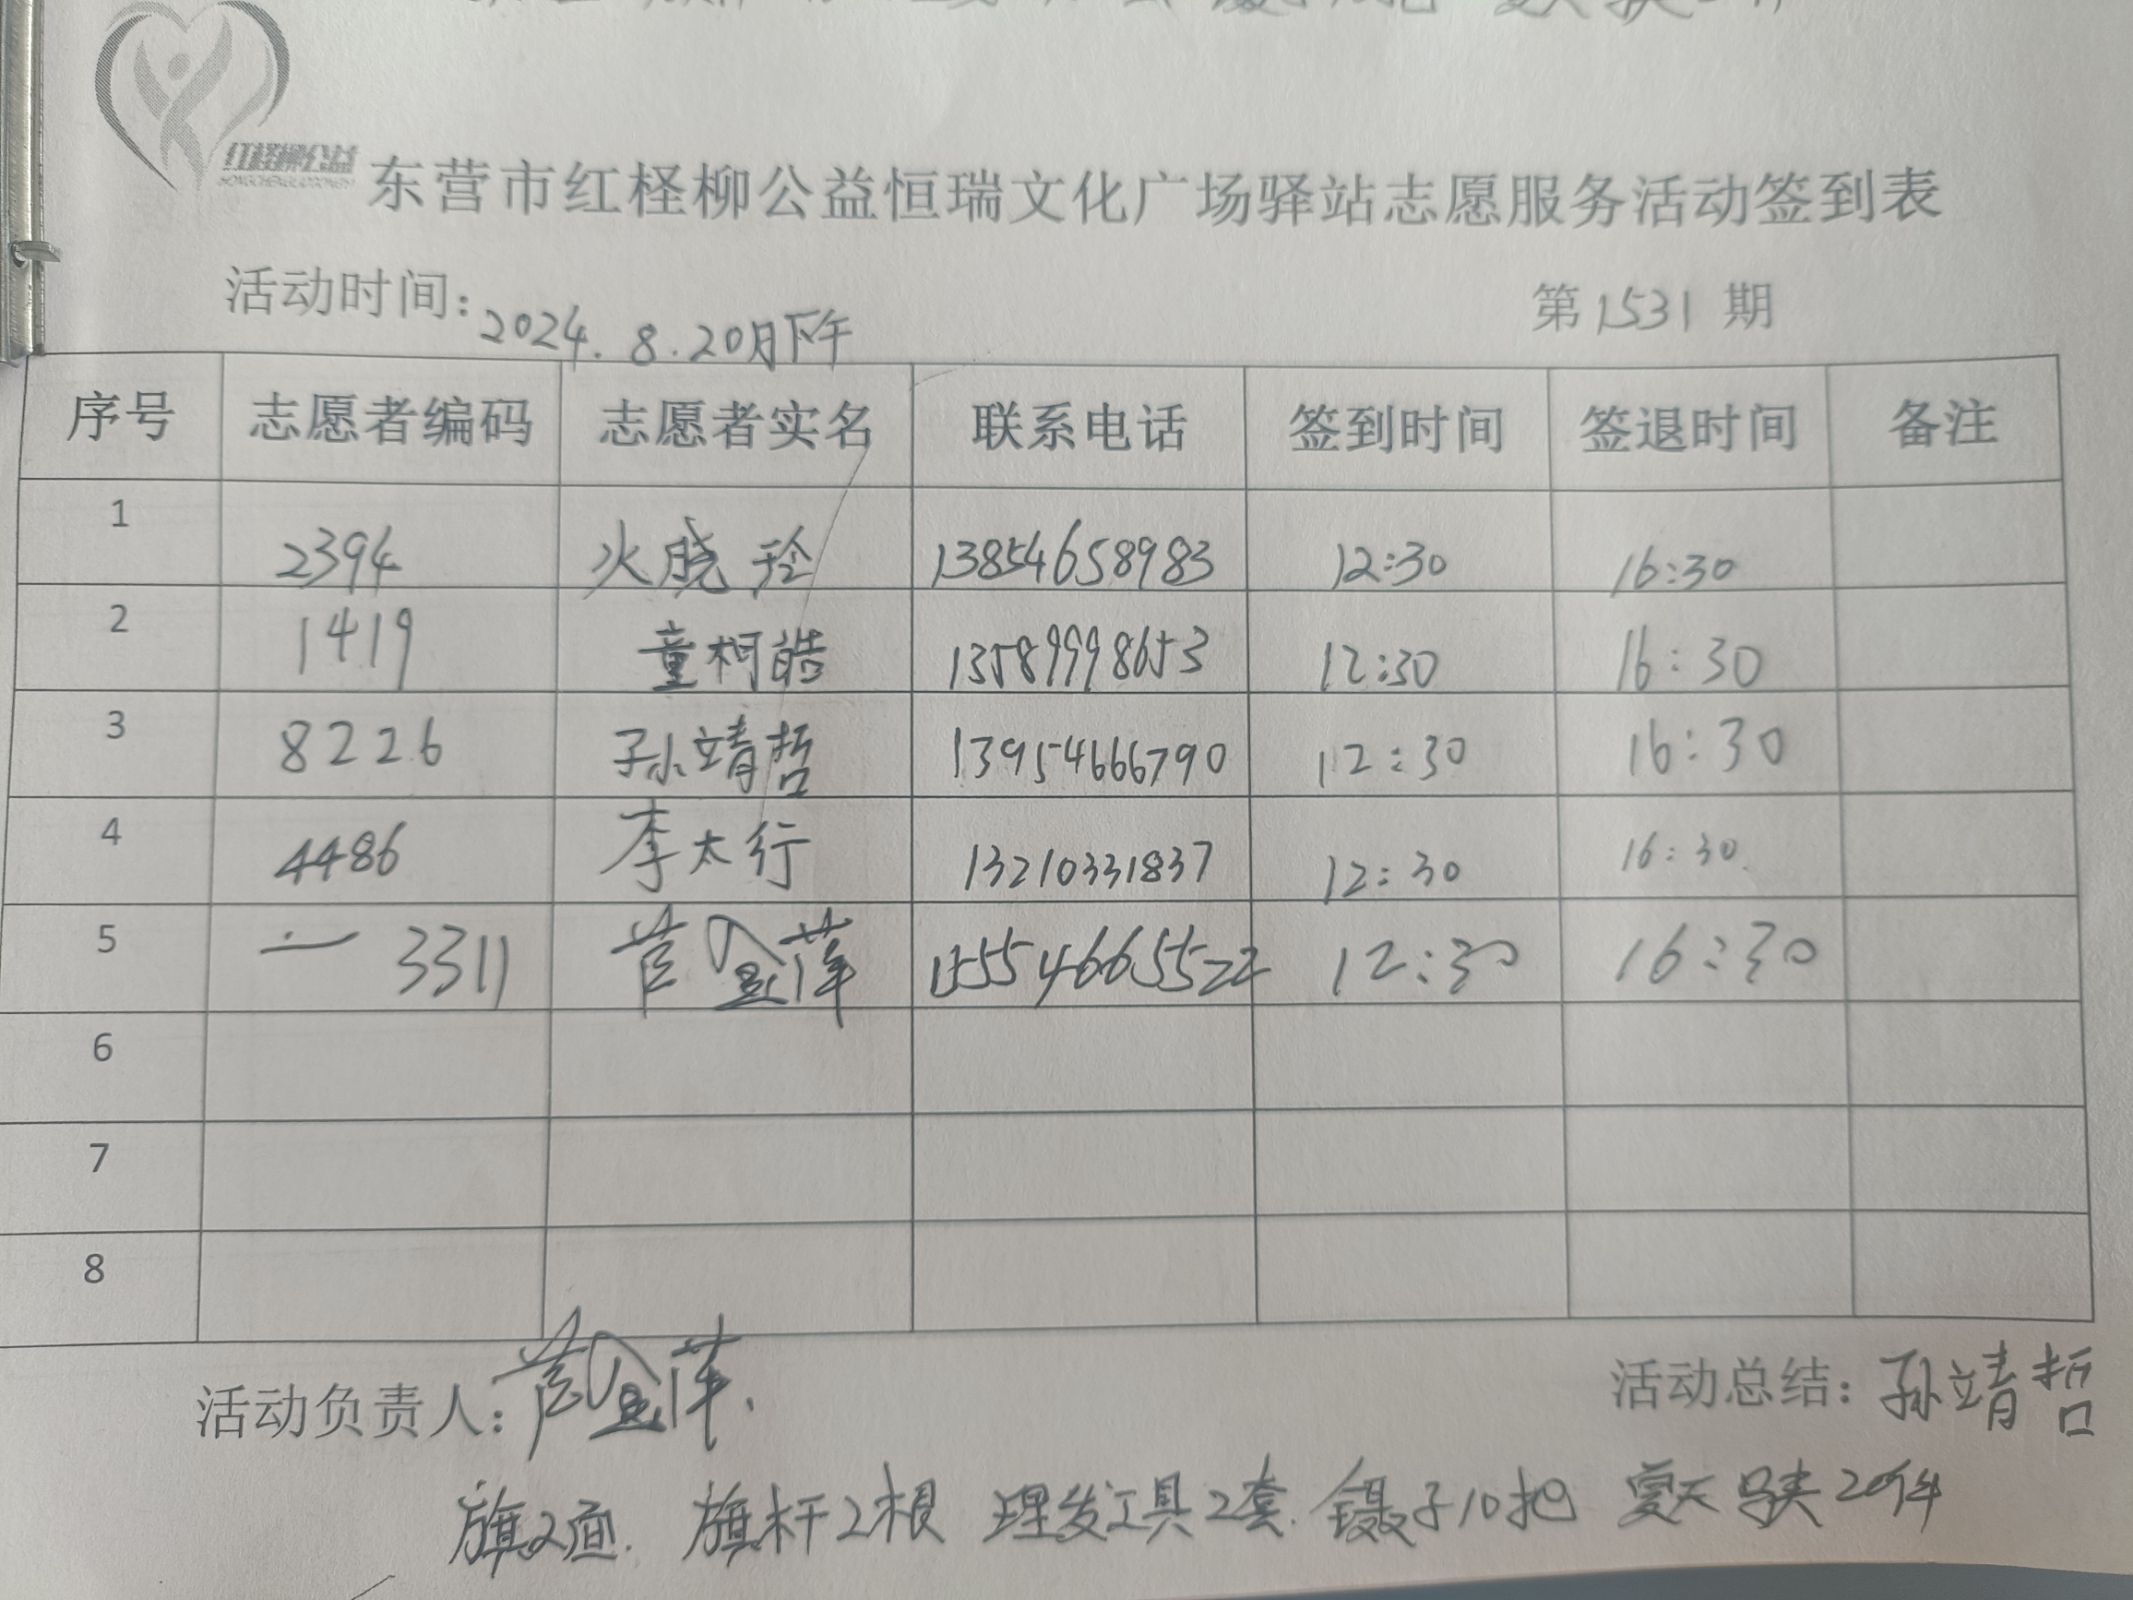 红柽柳公益
东营市红柽柳公益恒瑞文化广场驿站志愿服务活动签到表
活动时间：2024.8.20日下午 第1531期
序号 志愿者编码 志愿者实名 联系电话 签到时间 签退时间 备注
1 2394 火晓玲 13854658983 12:30 16:30
2 1419 童柯皓 13589998653 12:30 16:30
3 8226 孙靖哲 13954666790 12:30 16:30
4 4486 李太行 13210331837 12:30 16:30
5 3311 萍 12:30 16:30
6
7
8
活动负责人： 萍 活动总结：孙靖哲
旗2面. 旗杆2根 理发工具2套. 镊子10把 夏天马夹20件